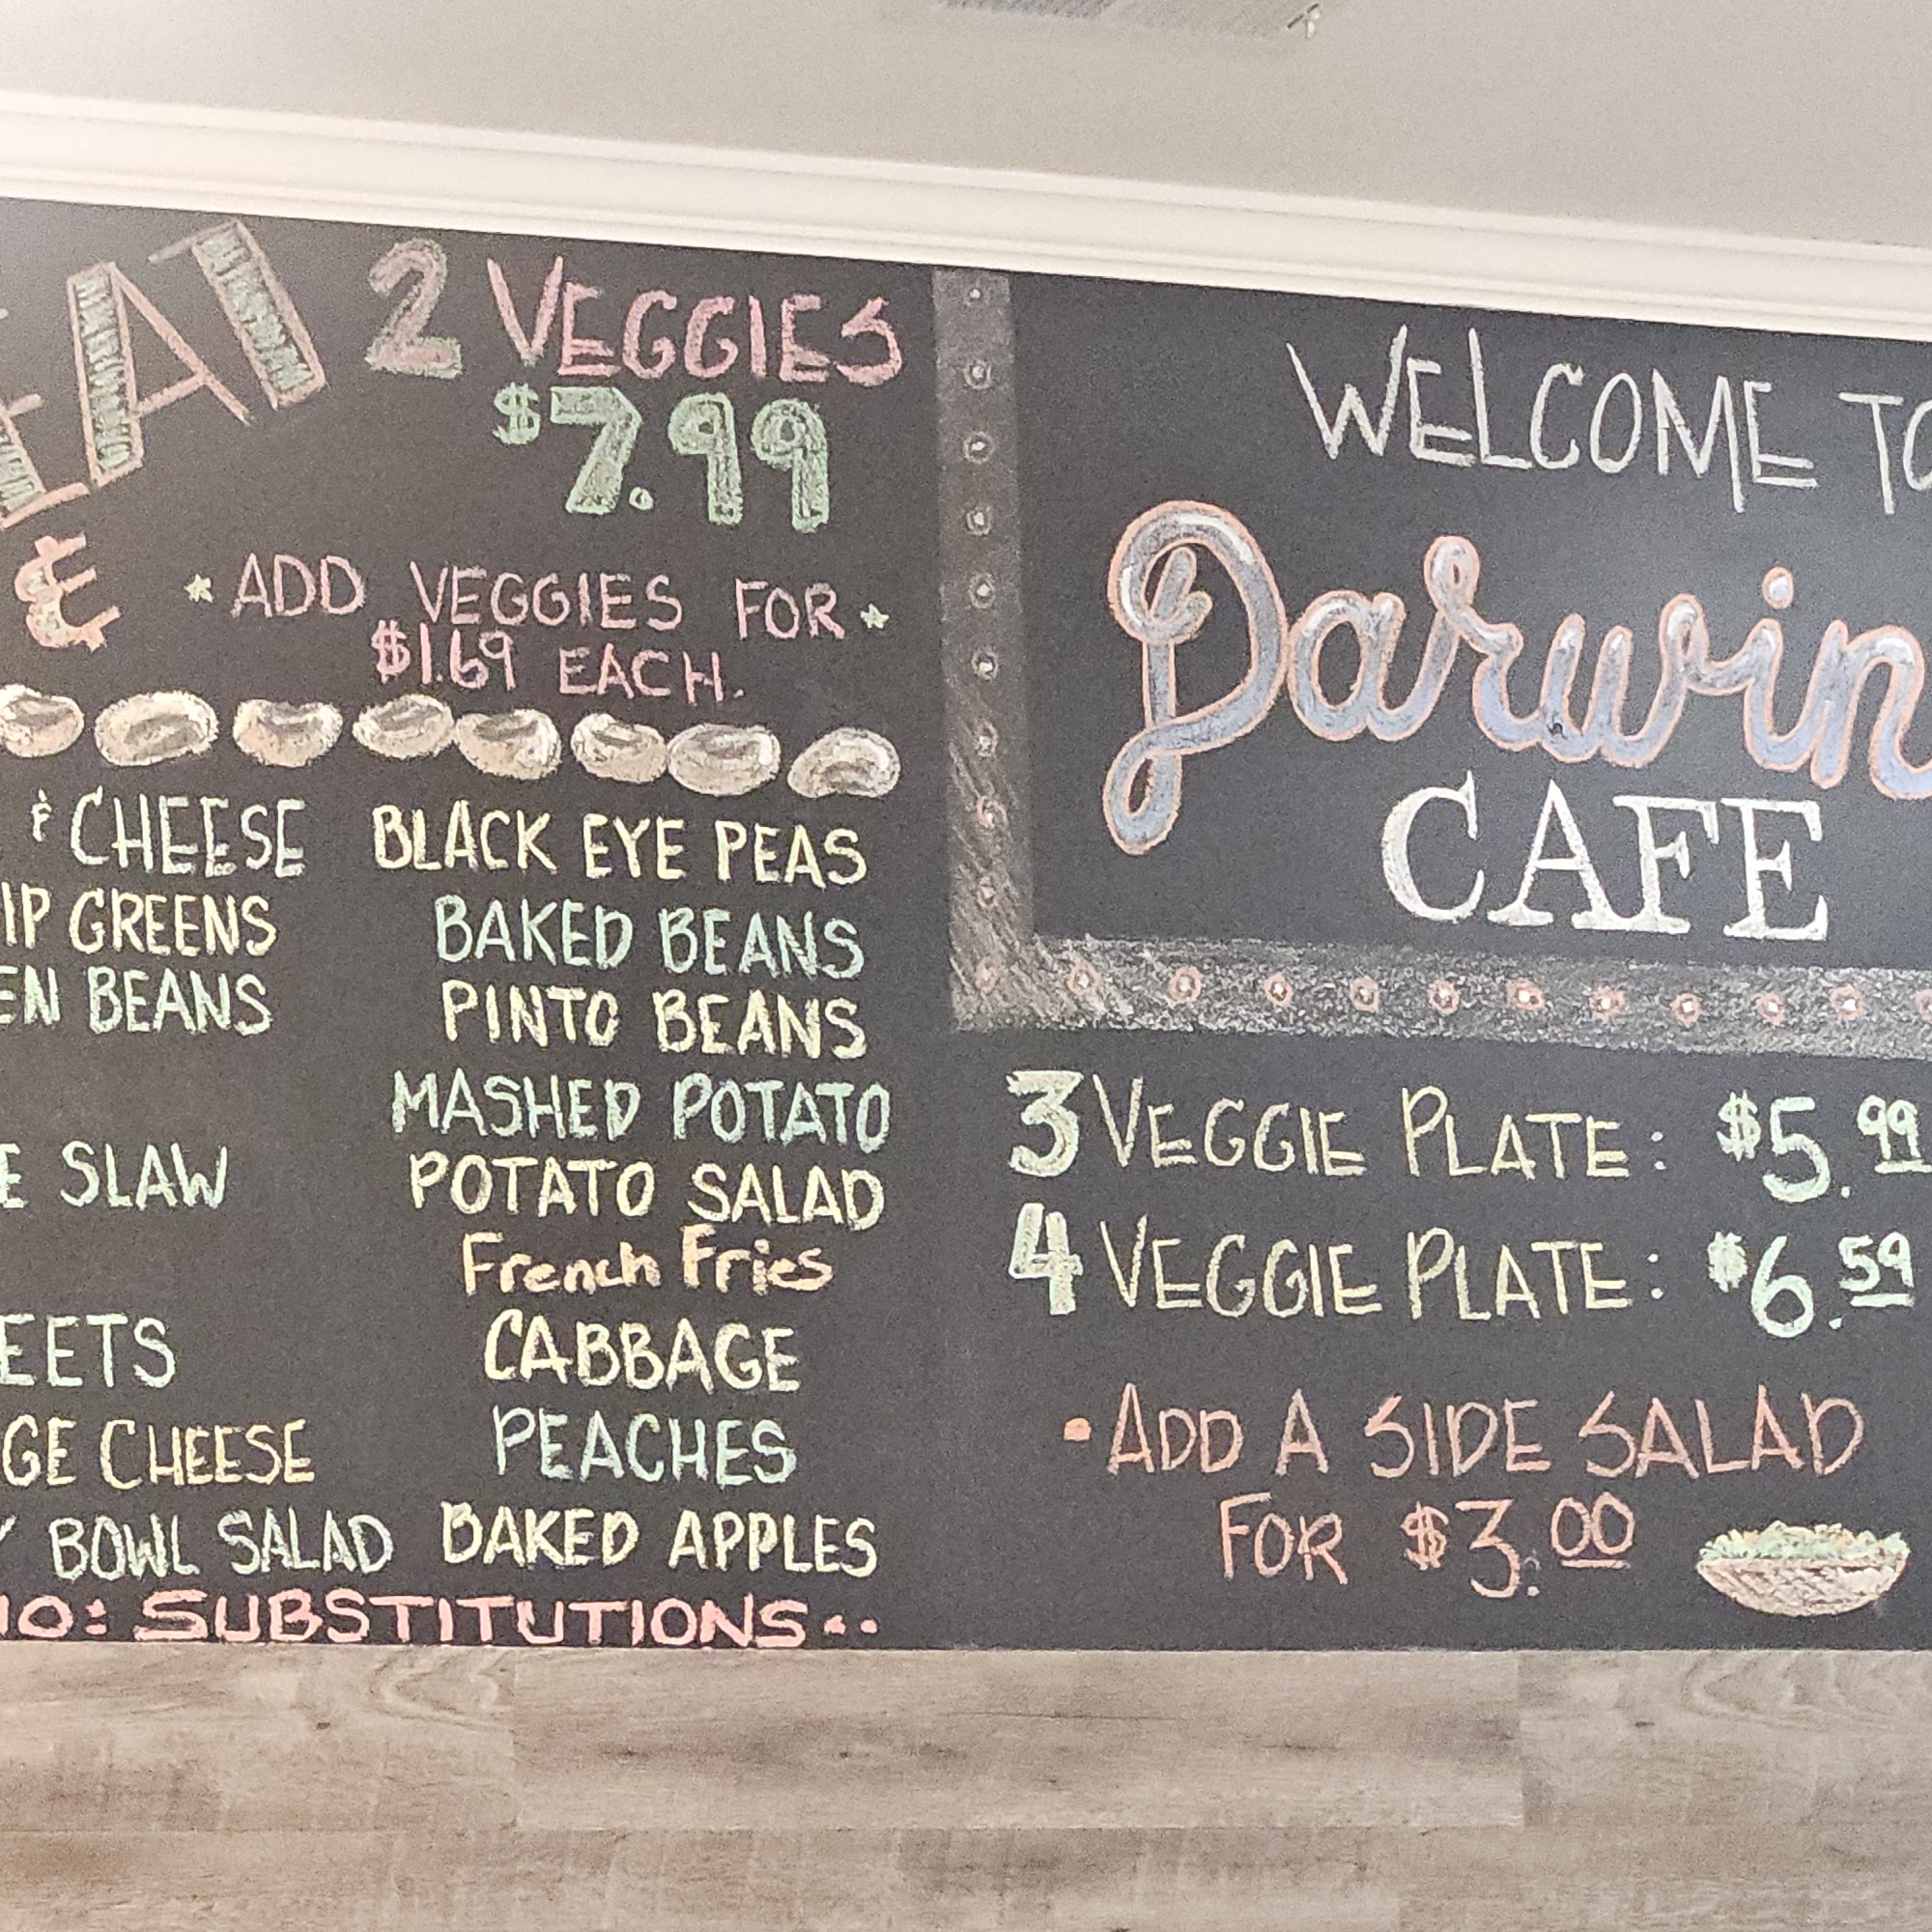 2 VEGGIES
$7.99
&
ADD VEGGIES FOR
$1.69 EACH.
& CHEESE
GREENS
BEANS
SLAW
CHEESE
BOWL SALAD
BLACK EYE PEAS
BAKED BEANS
PINTO BEANS
MASHED POTATO
POTATO SALAD
French Fries
CABBAGE
PEACHES
BAKED APPLES
SUBSTITUTIONS..
WELCOME TO
Darwin
CAFE
3 VEGGIE PLATE: $5.99
4 VEGGIE PLATE: $6.59
• ADD A SIDE SALAD
FOR $3.00